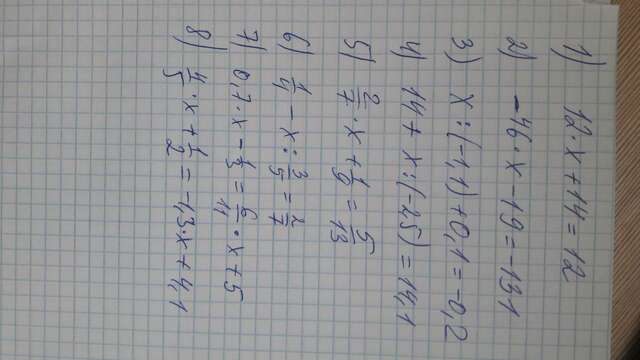 1) 12·x+14=12
2) -46·x-19=-131
3) x:(-1,1)+0,1=-0,2
4) 14+x:(-25)=14,1
5) 2/7·x+1/9=5/13
6) 1/4-x:3/5=2/7
7) 0,7·x-1/3=6/11·x+5
8) 4/5·x+1/2=-1,3·x+4,1